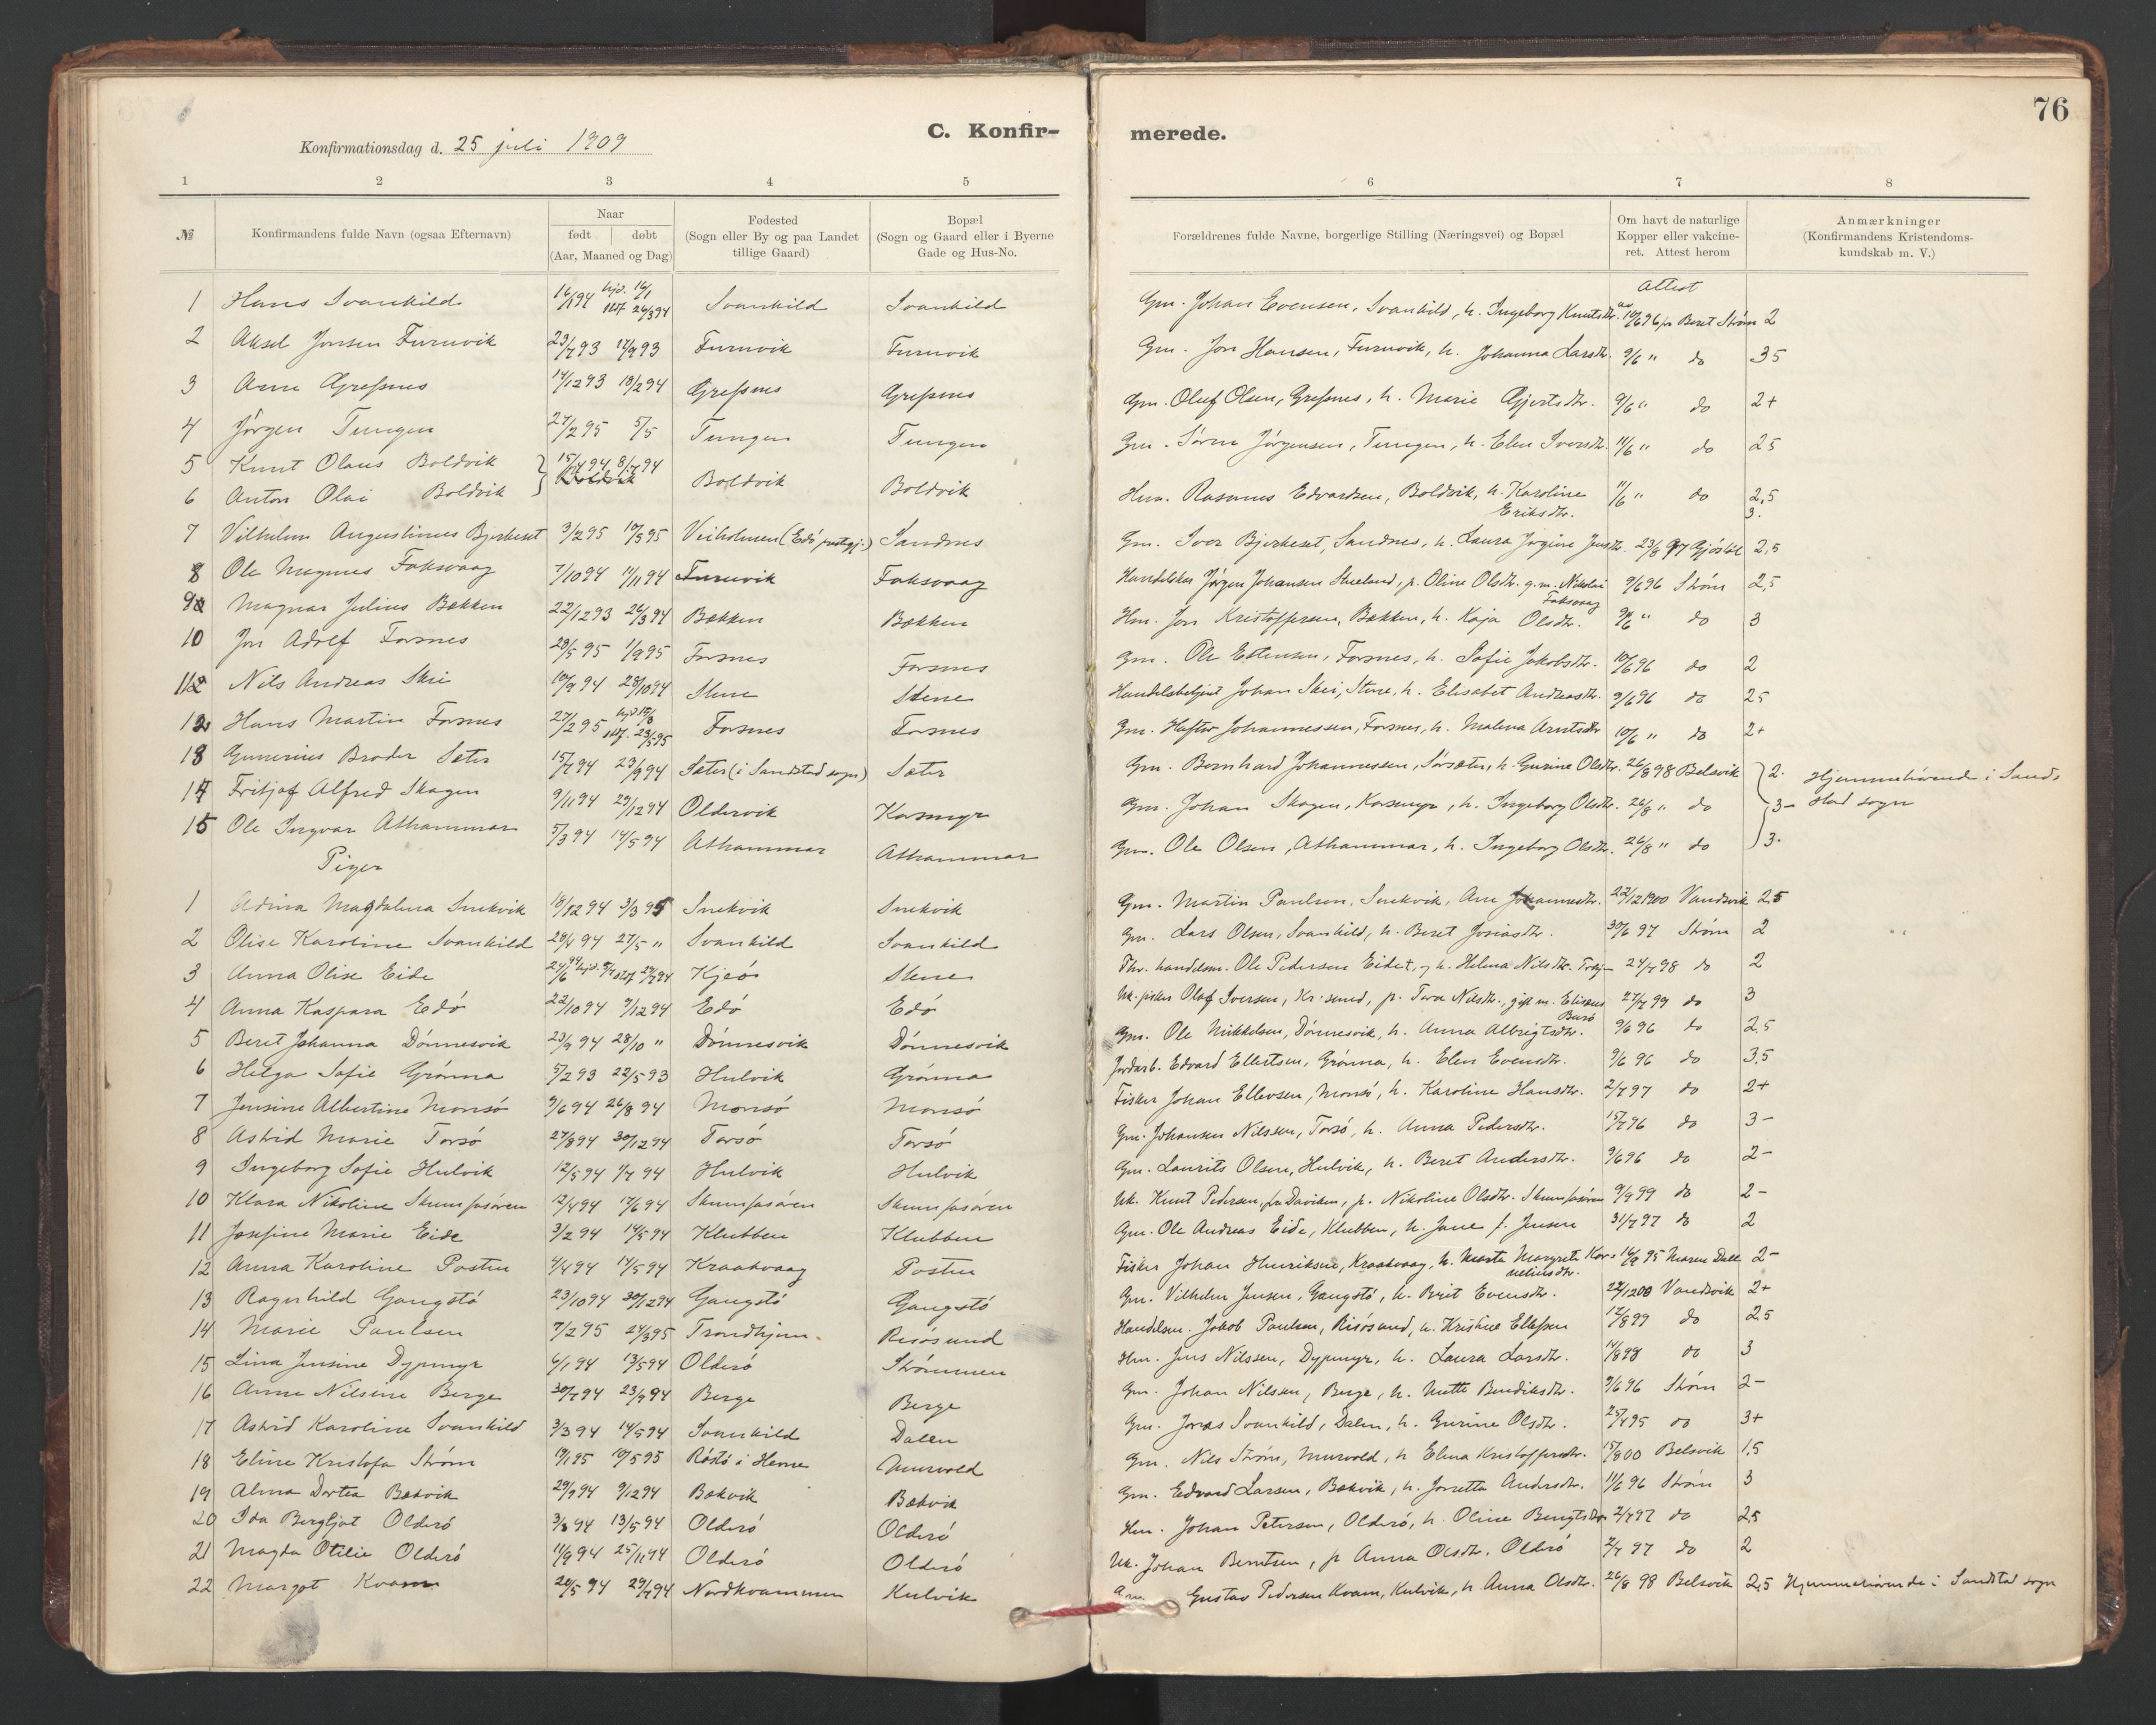 76
C. Konfir-
merede.
Konfirmationsdag d. 25 juli 1909
1 2 3 4 5 6 7 8
№
Konfirmandens fulde Navn (ogsaa Efternavn)
Naar
født | døbt
(Aar, Maaned og Dag)
Fødested
(Sogn eller By og paa Landet
tillige Gaard)
Bopæl
(Sogn og Gaard eller i Byerne
Gade og Hus-No.
Forældrenes fulde Navne, borgerlige Stilling (Næringsvei) og Bopæl
Om havt de naturlige
Kopper eller vakcine-
ret. Attest herom
Anmærkninger
(Konfirmandens Kristendoms-
kundskab m. V.)
Attest
1 Hans Svankild 16/1 94 hjd. 16/1 Svankild Svankild Gm. Johan Evensen, Svankild, h. Ingeborg Knutsdtr. 10/6 96 Beret Strøm 2
2 Aksel Jonsen Furuvik 23/7 93 17/9 93 Furuvik Furuvik Gm. Jon Hansen, Furuvik, h. Johanna Larsdtr. 9/6 " do 35
3 Arne Grefsnes 14/12 93 18/2 94 Grefsnes Grefsnes Gm. Oluf Olsen, Grefsnes, h. Marie Gjertsdtr. 9/6 " do 2+
4 Jørgen Tungen 27/2 95 5/5 Tungen Tungen Gm. Søren Jørgensen, Tungen, h. Elen Iversdtr. 11/6 " do 25
5 Knut Olaus Boldvik 15/4 94 8/7 94
6 Anton Olai Boldvik Boldvik Boldvik Hm. Rasmus Edvardsen, Boldvik, h. Karoline 11/6 " do 2,5
Eriksdtr. 3.
7 Vilhelm Augustinus Bjerkeset 3/2 95 19/5 95 Veiholmen (Edø prestgj.) Sandnes Gm. Iver Bjerkeset, Sandnes, h. Laura Jørgine Jensdtr. 23/8 97 2,5
8 Ole Magnus Faksvaag 7/10 94 11/11 94 Furuvik Faksvaag Jørgen Johansen p. Oline Olsdtr. g. m. Nikolai 9/6 96 Strøm 2,5
Faksvaag
9 Magnar Julius Bækken 22/12 93 26/3 94 Bækken Bækken Hm. Jon Kristoffersen, Bækken, h. Kaja Olsdtr. 9/6 " do 3
10 Jon Adolf Forsnes 28/5 95 1/9 95 Forsnes Forsnes Gm. Ole Ellensen, Forsnes, h. Sofie Jakobsdtr. 10/6 96 do 2
11 Nils Andreas Skei 10/9 94 28/10 94 Stene Stene Handelsbetjent Johan Skei, Stene, h. Elisabet Andreasdtr. 9/6 96 do 25
12 Hans Martin Forsnes 27/2 95 Forsnes Forsnes Gm. Haftor Johannessen, Forsnes, h. Malena Arntsdtr. 10/6 " do 2+
13 Gunerius Broder Sæter 15/7 94 23/9 94 Sæter (i Sandstad sogn) Sæter Gm. Bernhard Johannessen, Sørsæter, h. Gurine Olsdtr. 26/8 98 Belsvik 2. Hjemmehørende i Sand-
14 Fritjof Alfred Skagen 9/11 94 29/12 94 Oldervik Korsmyr Gm. Johan Skagen, Korsmyr, h. Ingeborg Olsdtr. 26/8 " do 3- stad sogn
15 Ole Ingvar Athammar 5/3 94 14/5 94 Athammar Athammar Gm. Ole Olsen, Athammar, h. Ingeborg Olsdtr. 26/8 " do 3.
Piger
1 Magdalena Snekvik 18/12 94 3/3 95 Snekvik Snekvik Gm. Martin Paulsen, Snekvik, Ane Johannesdtr. 22/12 1900 Vandvik 2,5
2 Olise Karoline Svankild 28/4 94 27/5 " Svankild Svankild Gm. Lars Olsen, Svankild, h. Beret Josiasdtr. 30/6 97 Strøm 2
3 Anna Olise Eide Kjeø Stene Fhv. handelsm. Ole Pedersen Eidet, og h. Helena Nilsdtr. 24/7 98 do 2
4 Anna Kaspara Edø 22/10 94 9/12 94 Edø Edø Uk. fisker Olaf Iversen, Kr.sund, p. Tora Nilsdtr., gift m. 27/7 99 do 3
5 Beret Johanna Dønnesvik 23/9 94 28/10 " Dønnesvik Dønnesvik Gm. Ole Mikkelsen, Dønnesvik, h. Anna Albrigtsdtr. 9/6 96 do 2,5
6 Helga Sofie Grønna 5/2 93 22/5 93 Hulvik Grønna Jordarb. Edvard Ellertsen, Grønna, h. Elen Evensdtr. 9/6 96 do 3,5
7 Jensine Albertine Monsø 9/6 94 26/8 94 Monsø Monsø Fisker Johan Ellevsen, Monsø, h. Karoline Hansdtr. 2/7 97 do 2+
8 Astrid Marie Torsø 27/8 94 30/12 94 Torsø Torsø Gm. Johansen Nilssen, Torsø, h. Anna Pedersdtr. 15/7 96 do 3-
9 Ingeborg Sofie Hulvik 12/5 94 1/7 94 Hulvik Hulvik Gm. Laurits Olsen, Hulvik, h. Beret Andersdtr. 9/6 96 do 2-
10 Klara Nikoline Skumfasøren 12/4 94 17/6 94 Skumfasøren Skumfasøren Uk. Knut Pedersen, p. Nikoline Olsdtr. Skumfasøren 9/9 99 do 2-
11 Josefine Marie Eide 3/2 94 14/5 94 Klubben Klubben Gm. Ole Andreas Eide, Klubben, h. Jane f. Jensen 31/7 97 do 2
12 Anna Karoline Posten 4/4 94 14/5 94 Kraakvaag Posten Fisker Johan Henriksen, Kraakvaag, h. Marta Margrete Kor- 16/9 95 Maren Dall 2-
neliusdtr.
13 Ragnhild Gangstø 23/10 94 30/12 94 Gangstø Gangstø Gm. Vilhelm Jensen, Gangstø, h. Berit Evensdtr. Vandvik 2+
14 Marie Paulsen 7/2 95 24/3 95 Trondhjem. Risøsund Handelsm. Jakob Paulsen, Risøsund, h. Kristine Ellefsen 12/8 99 do 2,5
15 Lina Jensine Dypmyr 6/1 94 13/5 94 Olderø Strømmen Hm. Jens Nilssen, Dypmyr, h. Laura Larsdtr. 14/8 98 do 3
16 Anne Nilsine Berge 30/7 94 23/9 94 Berge Berge Gm. Johan Nilssen, Berge, h. Mette Bendiksdtr. 9/6 96 Strøm 2-
17 Astrid Karoline Svankild 3/3 94 14/5 94 Svankild Dalen Gm. Jonas Svankild, Dalen, h. Gurine Olsdtr. 25/7 95 do 3+
18 Eline Kristofa Strøm 19/1 95 19/5 95 Røstø i Hevne Murvold Gm. Nils Strøm, Murvold, h Elena Kristoffersdtr. 15/8 00 Belsvik 1,5
19 Alma Dortea Bækvik 29/9 94 9/12 94 Bækvik Bækvik Gm. Edvard Larsen, Bækvik, h. Jonetta Andersdtr. 11/6 96 Strøm 3
20 Ida Bergljot Olderø 3/3 94 13/5 94 Olderø Olderø Hm. Johan Petersen, Olderø, h. Oline Bengtsdtr. 2/7 97 do 2,5
21 Magda Otilie Olderø 11/9 94 25/11 94 Olderø Olderø Uk. Johan Berntsen, p Anna Olsdtr. Olderø 2/7 97 do 2
22 Margot Kvam 20/5 94 29/7 94 Nordkvammen Kulvik Gm. Gustav Pedersen Kvam, Kulvik, h Anna Olsdtr. 26/8 98 Belsvik 2,5 Hjemmehørende i Sandstad sogn